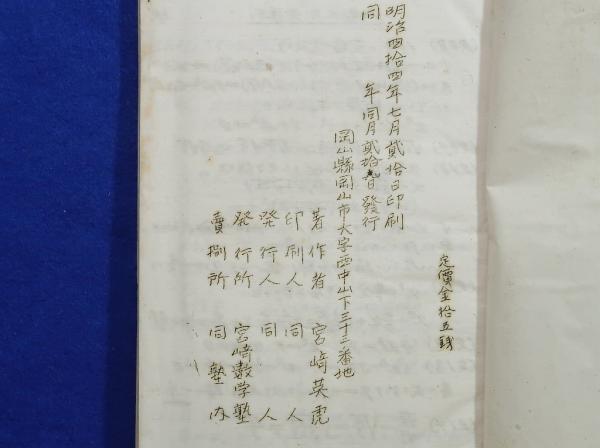 定價金拾五錢
明治四拾四年七月貳拾日印刷
同 年同月貳拾 日發行
岡山縣岡山市大字西中山下三十三番地
著作者 宮崎英虎
印刷人 同人
発行人 同人
発行所 宮崎数学塾
賣捌所 同塾内